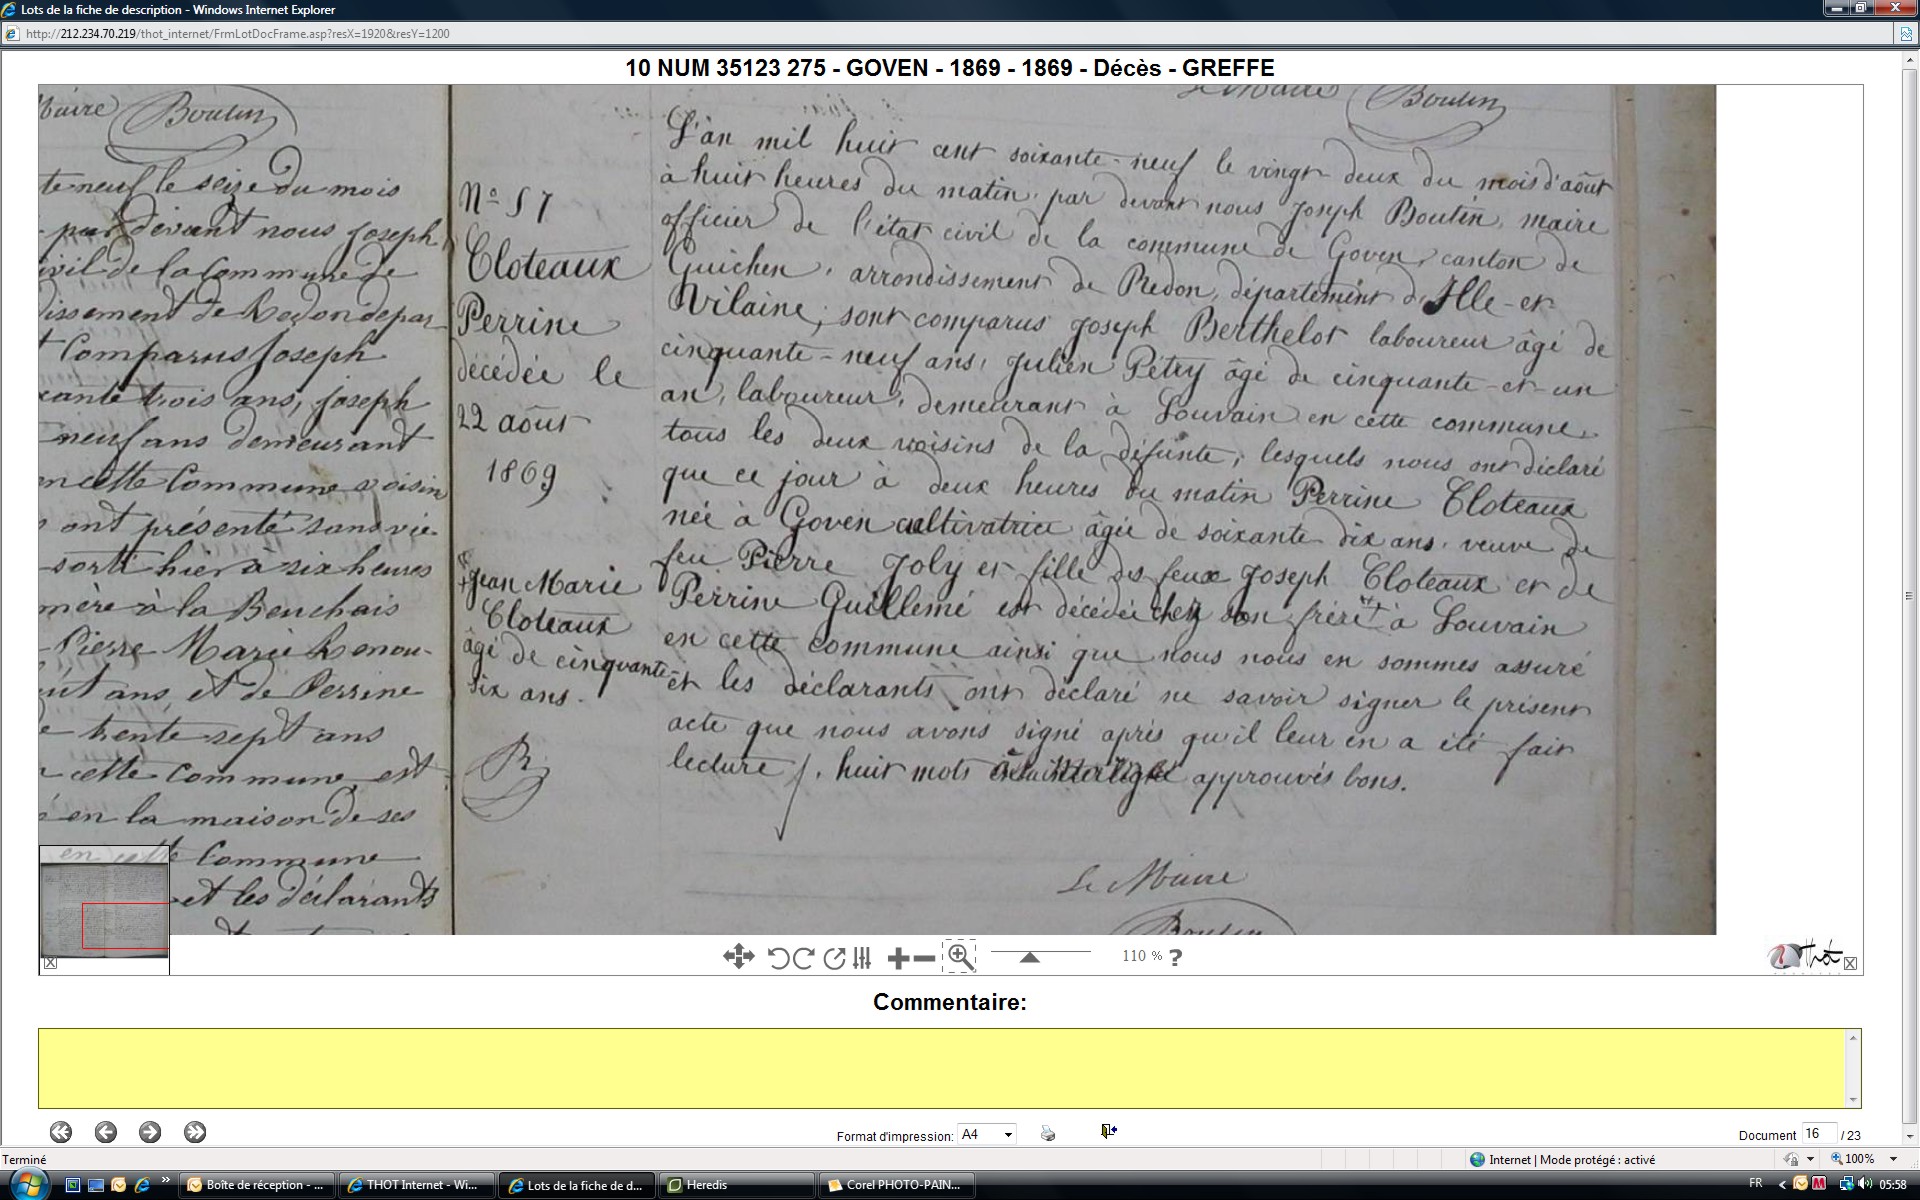 Lots de la fiche de description - Windows Internet Explorer
http://212.234.70.219/thot_internet/FrmLotDocFrame.asp?resX=1920&resY=1200
10 NUM 35123 275 - GOVEN - 1869 - 1869 - Décès - GREFFE
Maire Boutin
te neuf le seize du mois
par devant nous Joseph
ivil de la Commune de
dissement de Redon depar
t Comparus Joseph
xante trois ans, joseph
neuf ans demeurant
en cette Commune voisin
ont présenté sans vie
sorti hier à six heures
mère à la Benchais
Pierre Marie Renou-
uit ans, et de Perrine
e trente sept ans
cette Commune, est
é en la maison de ses
en cette Commune
et les déclarants
Nº 57
Cloteaux
Perrine
décédée le
22 août
1869
Jean Marie
Cloteaux
âgé de cinquante-
six ans.
B
Le Maire Boutin
L'an mil huit cent soixante-neuf le vingt deux du mois d'août
à huit heures du matin, par devant nous Joseph Boutin, maire
officier de l'état civil de la commune de Goven, canton de
Guichen, arrondissement de Redon, département d'Ille-et-
Vilaine, sont comparus Joseph Berthelot laboureur âgé de
cinquante-neuf ans, Julien Pétry âgé de cinquante-et-un
an, laboureur, demeurant à Louvain en cette commune,
tous les deux voisins de la défunte, lesquels nous ont déclaré
que ce jour à deux heures du matin Perrine Cloteaux
née à Goven cultivatrice âgée de soixante dix ans, veuve de
feu Pierre Joly et fille des feux Joseph Cloteaux et de
Perrine Guillemé est décédée chez son frère à Louvain
en cette commune ainsi que nous nous en sommes assuré
et les déclarants ont déclaré ne savoir signer le présent
acte que nous avons signé après qu'il leur en a été fait
lecture /. huit mots approuvés bons.
Le Maire
Boutin
110 % ?
Thot
Commentaire:
Format d'impression: A4
Document 16 / 23
Terminé
Internet | Mode protégé : activé
100%
Boîte de réception - ...
THOT Internet - Wi...
Lots de la fiche de d...
Heredis
Corel PHOTO-PAIN...
FR
05:58